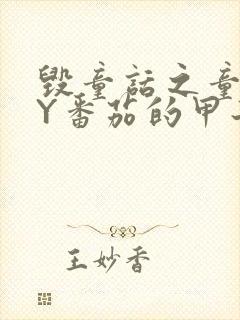 毁童话之童
丫番茄的甲
王妙香